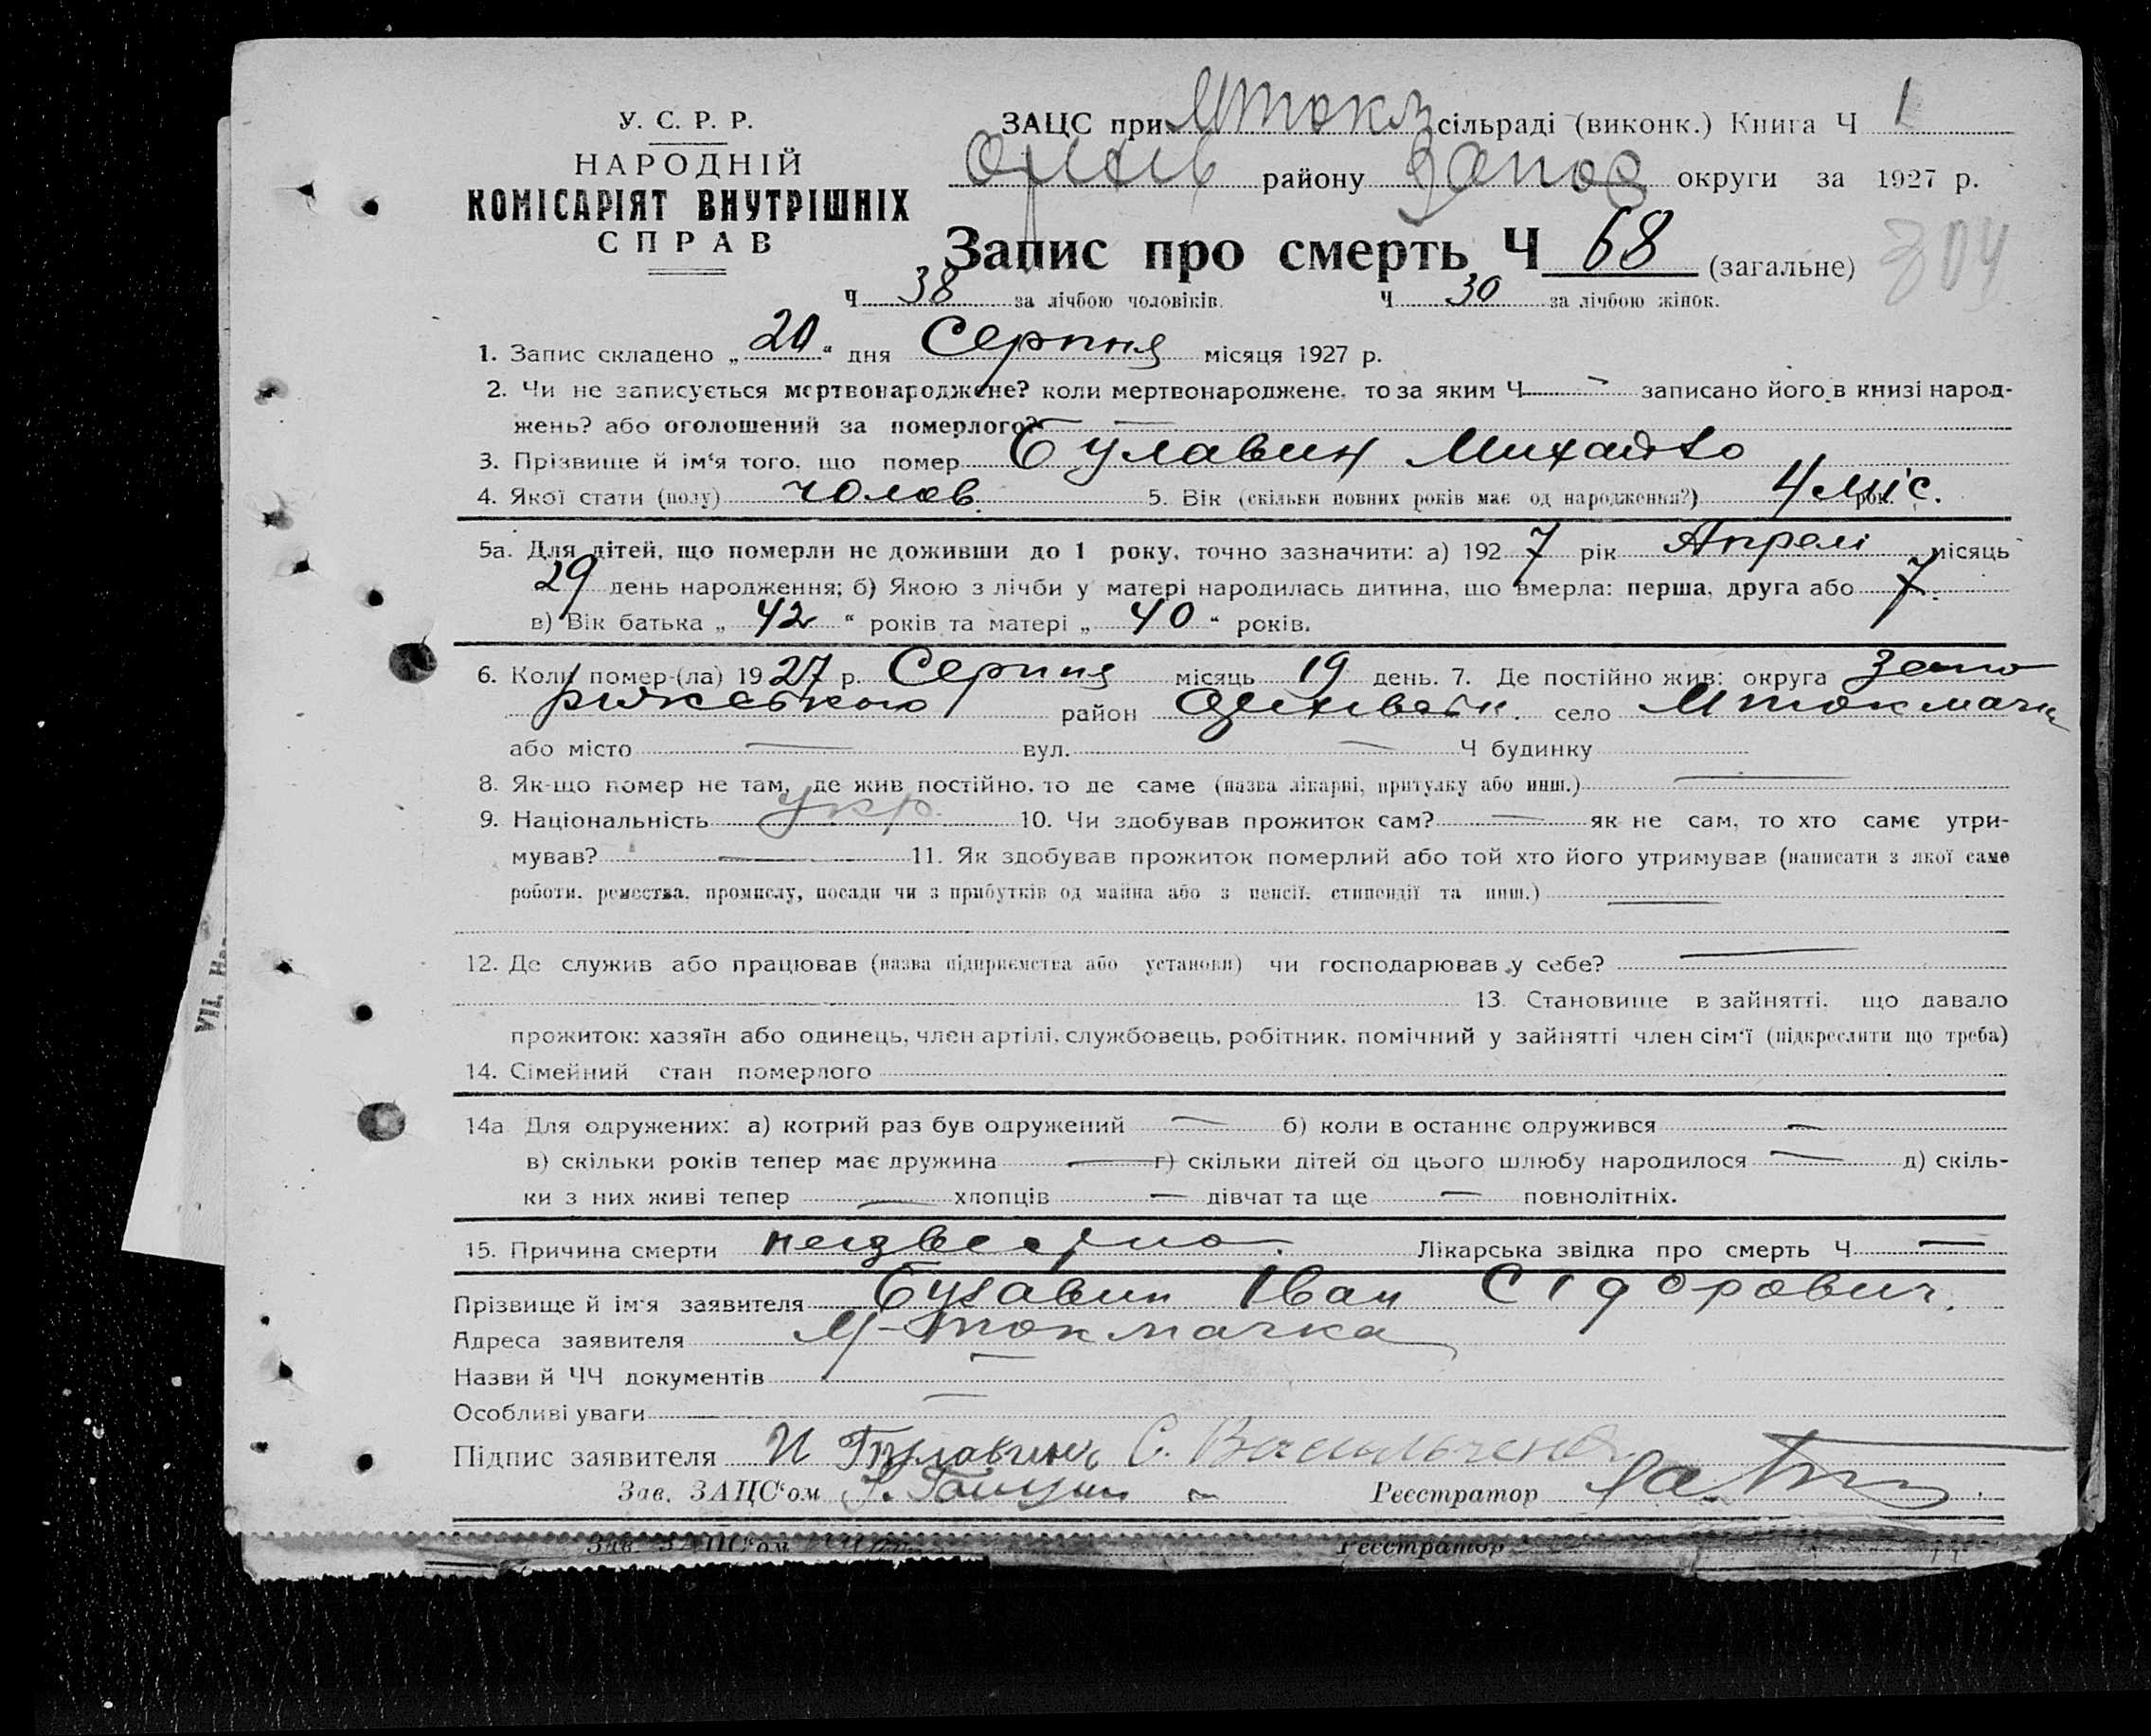 У. С. Р. Р.
НАРОДНІЙ
КОМІСАРІЯТ ВНУТРІШНІХ
СПРАВ
ЗАЦС при М токм сільраді (виконк.) Книга Ч 1
Оріхів району Запор округи за 1927 р.
Запис про смерть Ч 68 (загальне) 304
Ч 38 за лічбою чоловіків. Ч 30 за лічбою жінок.
1. Запис складено „ 20 “ дня Серпня місяця 1927 р.
2. Чи не записується мертвонароджене? коли мертвонароджене, то за яким Ч — записано його в книзі народ-
жень? або оголошений за померлого? —
3. Прізвище й ім‘я того, що помер Булавин Михайло
4. Якої стати (полу) чолов. 5. Вік (скільки повних років має од народження?) 4 міс. рок.
5а. Для дітей, що померли не доживши до 1 року, точно зазначити: а) 192 7 рік Апрелі місяць
29 день народження; б) Якою з лічби у матері народилась дитина, що вмерла: перша, друга або 7.
в) Вік батька „ 42 “ років та матері „ 40 “ років.
6. Коли помер-(ла) 19 27 р. Серпня місяць 19 день. 7. Де постійно жив: округа Запо
ріжською район Оріхівськ. село М токмачка
або місто — вул. — Ч будинку
8. Як-що помер не там, де жив постійно, то де саме (назва лікарні, притулку або инш.) —
9. Національність укр. 10. Чи здобував прожиток сам? — як не сам, то хто саме утри-
мував? — 11. Як здобував прожиток померлий або той хто його утримував (написати з якої саме
роботи, ремества, промислу, посади чи з прибутків од майна або з пенсії, стипендії та инш.) —
12. Де служив або працював (назва підприємства або установи) чи господарював у себе? —
13. Становище в зайнятті, що давало
прожиток: хазяїн або одинець, член артілі, службовець, робітник, помічний у зайнятті член сім‘ї (підкреслити що треба)
14. Сімейний стан померлого
14а Для одружених: а) котрий раз був одружений — б) коли в останнє одружився —
в) скільки років тепер має дружина — г) скільки дітей од цього шлюбу народилося — д) скіль-
ки з них живі тепер — хлопців — дівчат та ще — повнолітніх.
15. Причина смерти неизвесно. Лікарська звідка про смерть Ч —
Прізвище й ім‘я заявителя Булавин Іван Сідорович.
Адреса заявителя М-токмачка
Назви й ЧЧ документів —
Особливі уваги —
Підпис заявителя И Булавинъ С. Васильченко
Зав. ЗАЦС‘ом Реєстратор
Зав. ЗАЦС‘ом Реєстратор
VII. На